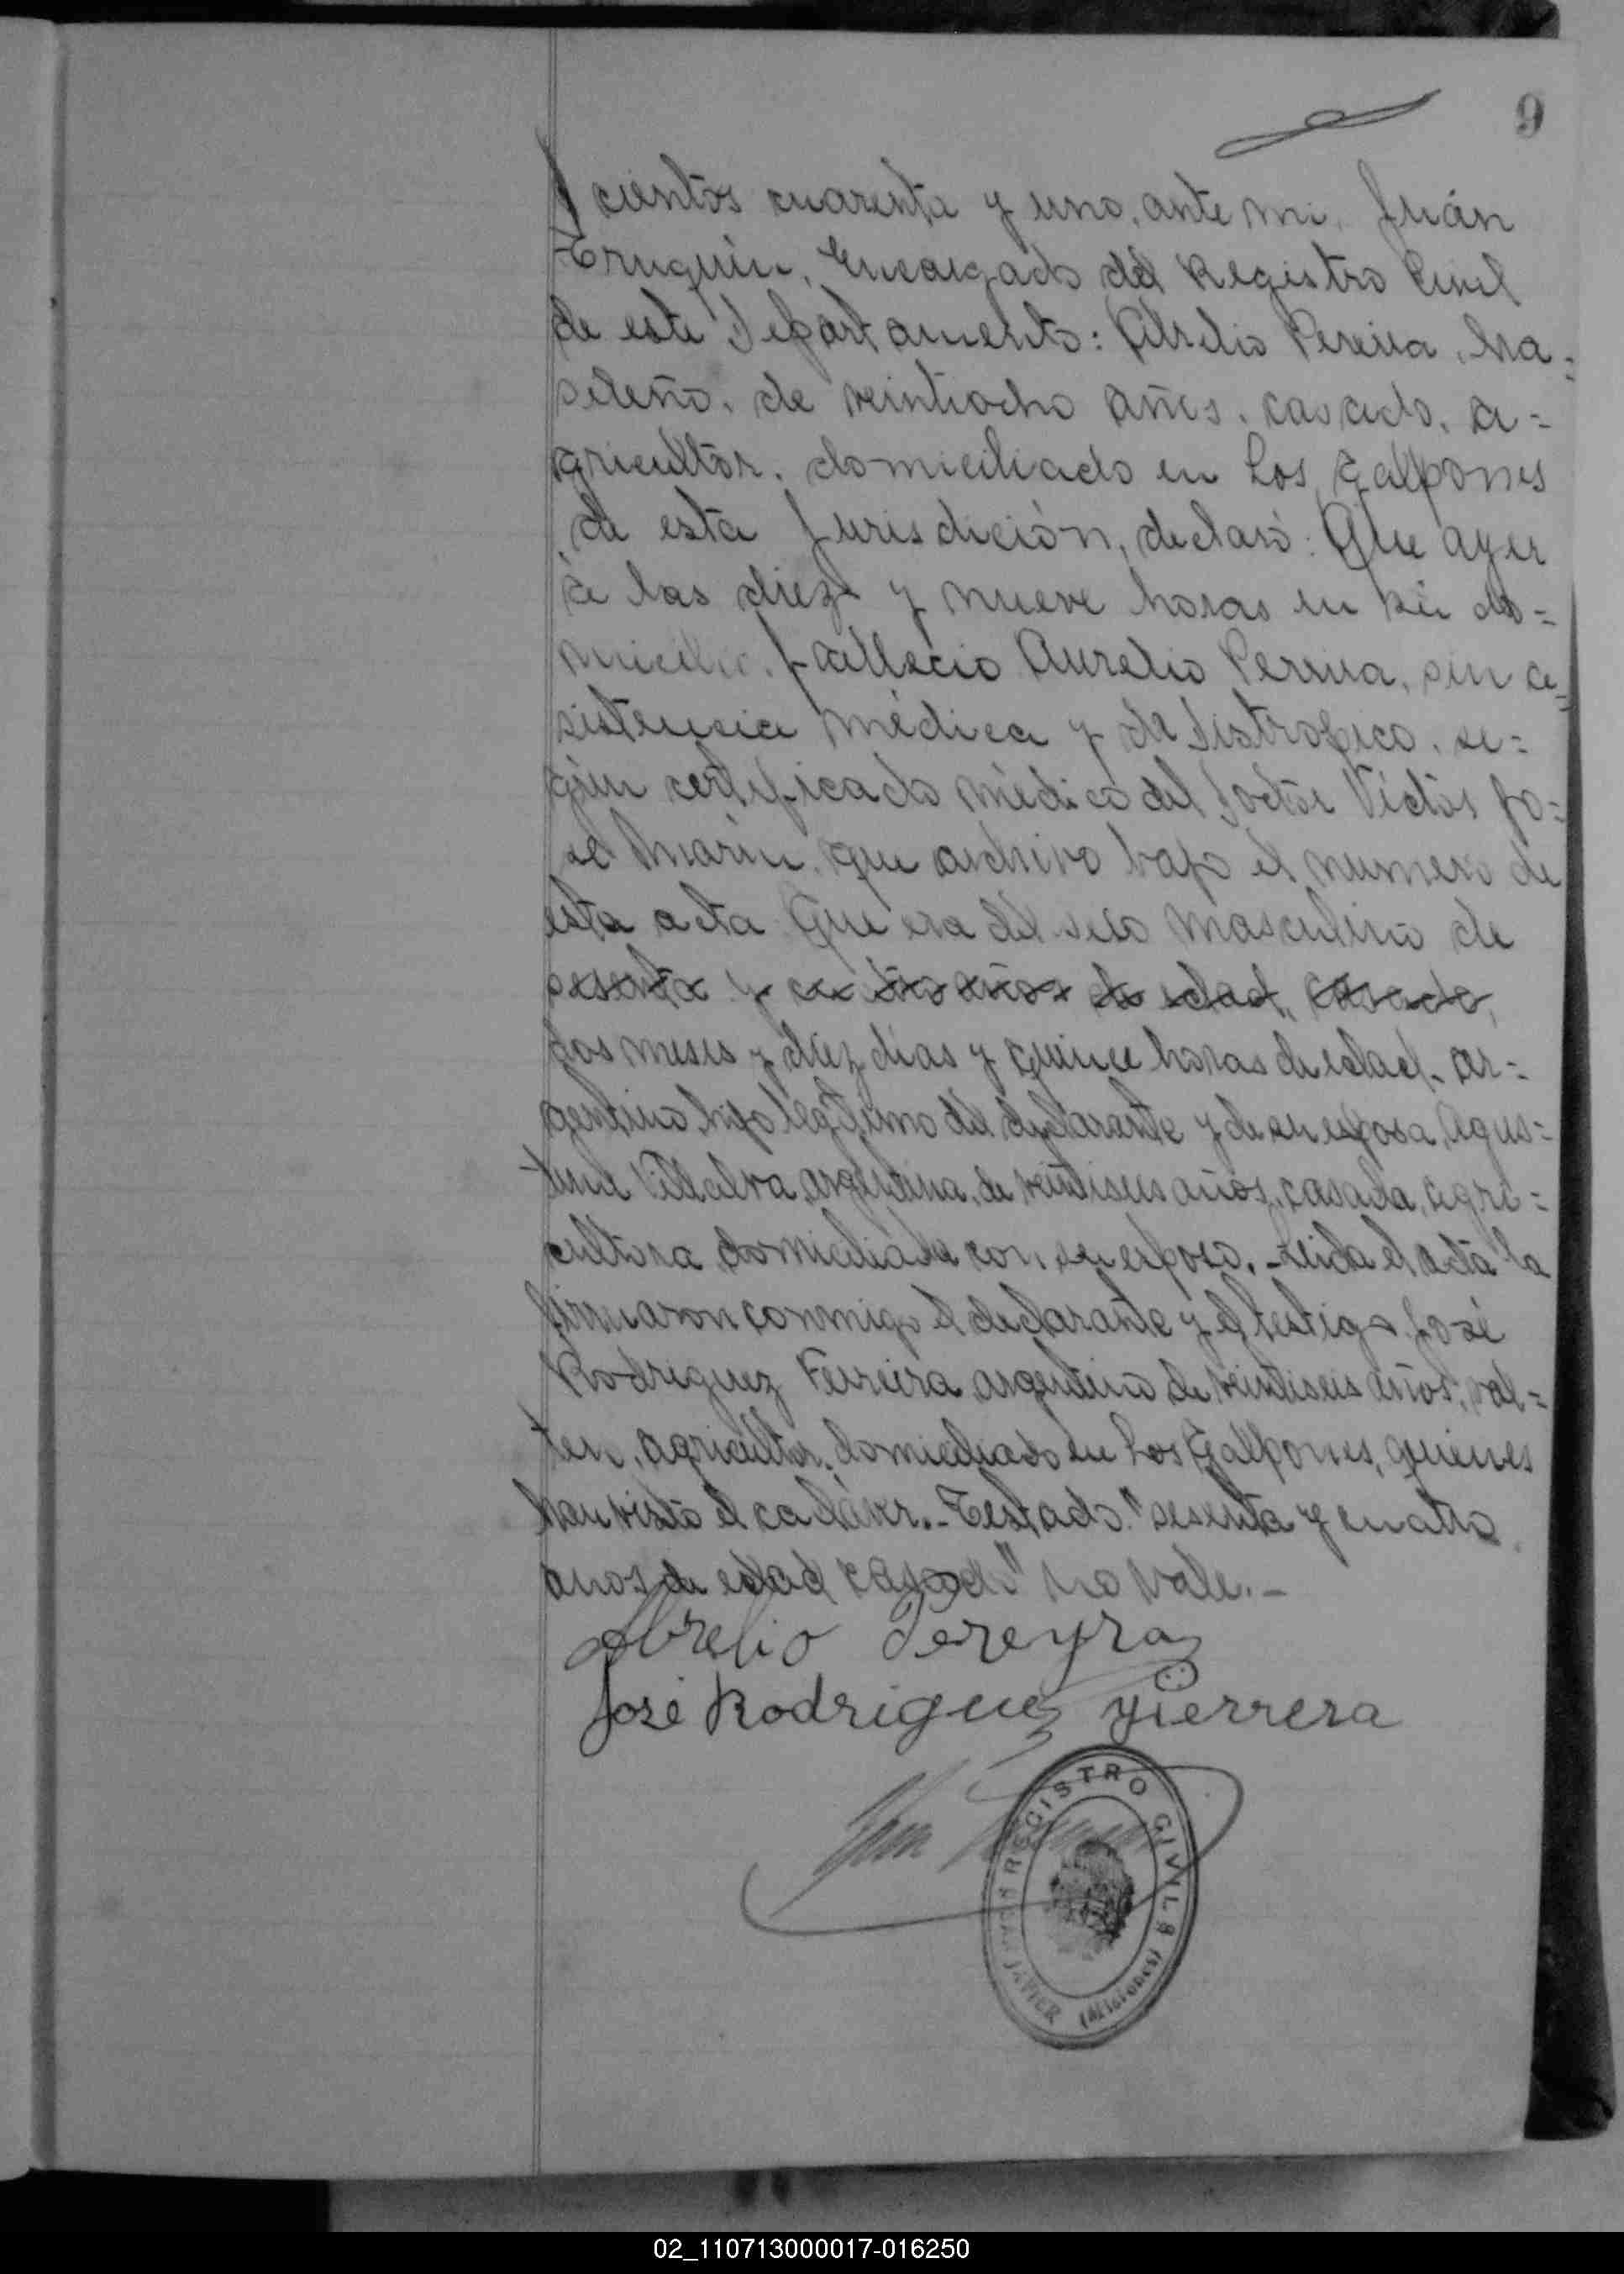 9
cientos cuarenta y uno, ante mi, Juán
Encargado del Registro Civil
de este Departamento: Abrelio Pereira, bra=
sileño, de veintiocho años, casado, a=
gricultor, domiciliado en Los Galpones
de esta Jurisdición, declaró: Que ayer
a las diez y nueve horas en su do=
micilio, fallecio Aurelio Pereira, sin a=
sistencia médica y de distrofico, se=
gún certificado médico del Doctor Víctor Jo=
sé Marín, que archivo bajo el numero de
esta acta. Que era del sexo masculino de
sesenta y cuatro años de edad, casado,
dos meses y diez dias y quince horas de edad, ar=
gentino, hijo legitimo del declarante y de su esposa, Agus=
tina Villalva, argentina, de veintiseis años, casada, agri=
cultora domiciliada con su esposo.- Leida el acta la
firmaron conmigo el declarante y el testigo José
Rodriguez Ferreira argentino de veintiseis años, sol=
tero, agricultor, domiciliado en Los Galpones, quienes
han visto el cadáver.- Testado: "sesenta y cuatro
anos de edad casado" no vale.-
Abrelio Pereyra
José Rodriguez yierrera
Juan
REGISTRO CIVIL
JAVIER (Misiones)
02_110713000017-016250